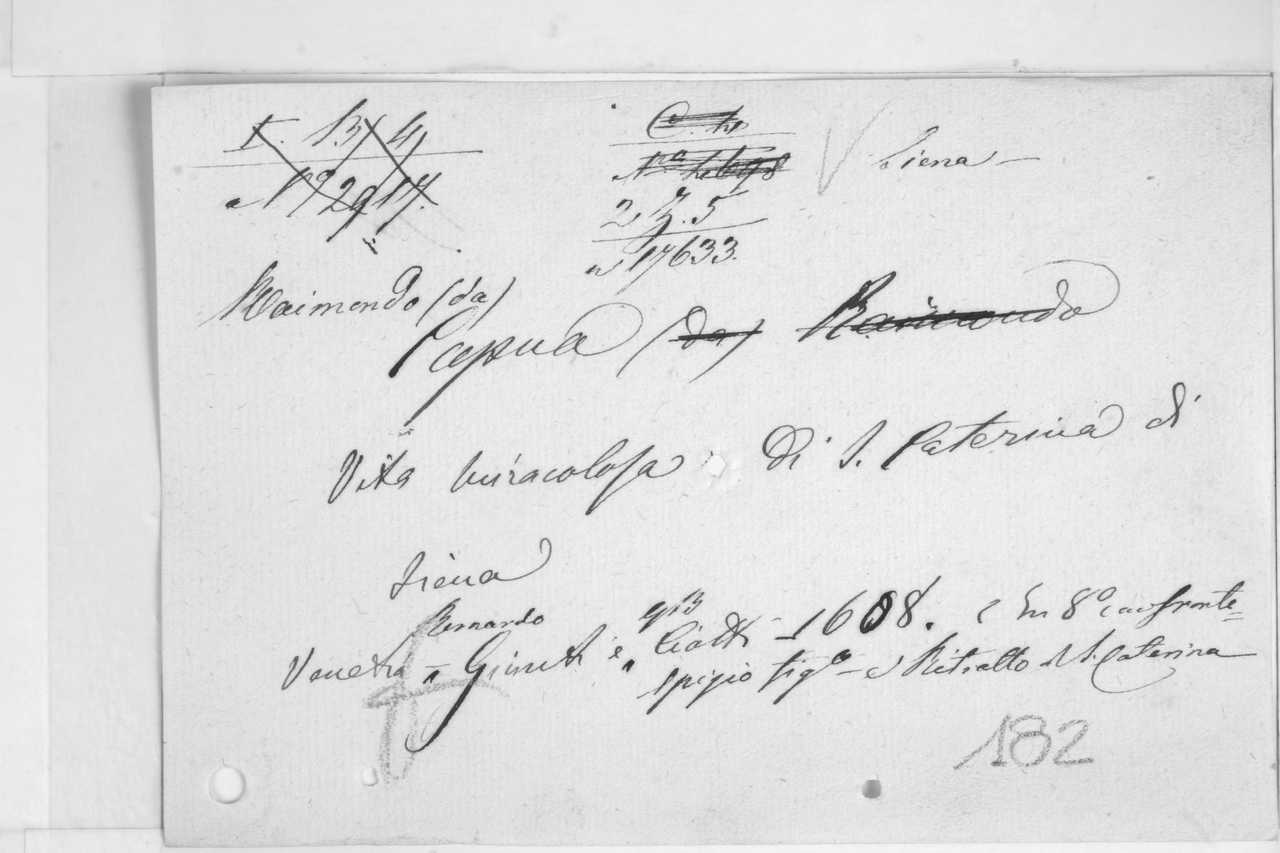 I. 13. 4.
Nº 2917.
C. h
Nrº
2 Z. 5
nº 17633.
Siena —
Raimondo (da)
Capua (da) Raimondo
Vita miracolosa di S. Caterina di
Siena
Bernardo
Venetia = Giunti è Ciotti — 1608. in 8º con fronte=
spizio figº e Ritratto di S. Caterina
182